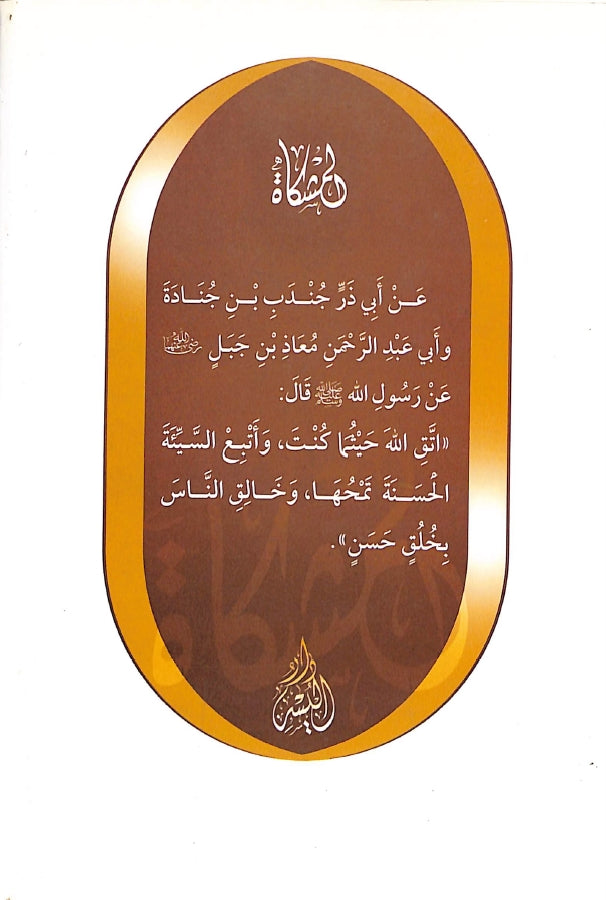 المشكاة
عَنْ أَبِي ذَرٍّ جُنْدَبِ بْنِ جُنَادَةَ
وأَبي عَبْدِ الرَّحْمَنِ مُعَاذِ بْنِ جَبَلٍ رضي الله عنهما
عَنْ رَسُولِ الله ﷺ قَالَ:
«اتَّقِ اللهَ حَيْثُمَا كُنْتَ، وَأَتْبِعْ السَّيِّئَةَ
الْحَسَنَةَ تَمْحُهَا، وَخَالِقِ النَّاسَ
بِخُلُقٍ حَسَنٍ».
المشكاة
دار اليسر